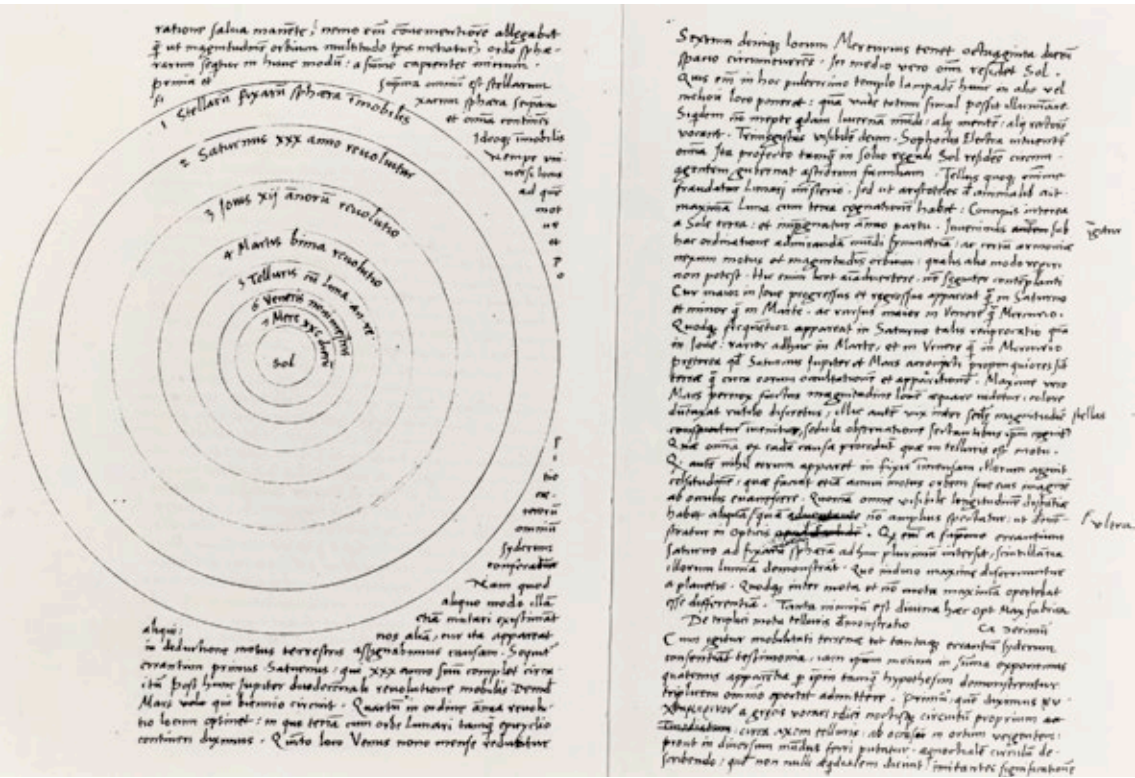 ratione salua manente, nemo em̄ conuenientiorē allegabit
q̄ ut magnitudinē orbium multitudo tp̄is metiatur, ordo sphæ-
rarum sequitur in hunc modū: a sum̄o capientes initium.
prima et suprema omniū est stellarum
fixarum sphæra seipsam
et omīa continēs
Ideoq̨ im̄obilis
Nempe vni
uersi locus
ad quē
mot
us
et
1 Stellarū fixarū sphæra im̄obilis
2 Saturnus xxx anno reuoluitur
3 Iouis xij annorū reuolutio
4 Martis bima reuolutio
5 Telluris cū Luna an. re.
6 Veneris nonimestris
7 Merc xxc dierū
Sol
tio
ce-
terorū
omniū
syderum
conferatur
Nam quod
aliquo modo illā
etiā mutari existimāt
aliqui: nos aliā, cur ita appareat
in deductione motus terrestris assignabimus causam. Sequit͛
errantium primus Saturnus: qui xxx anno suū complet circu-
itū. Post hunc Jupiter duodecennali reuolutione mobilis. Deinde
Mars vole qui biennio circuit. Quartū in ordine ānua reuolu-
tio locum optinet: in quo terrā cum orbe Lunari tamq̄ epicyclio
contineri diximus. Quinto loco Venus nono mense reducitur
Sextum deniq̨ locum Mercurius tenet octuaginta dierū
spacio circumcurrēs. In medio vero omī residet Sol.
Quis em̄ in hoc pulcerrimo templo lampadē hanc in alio vel
meliori loco poneret: quā vnde totum simul possit illuminare.
Siquidem nō inepte quidam lucernā mūdi: alij mentē: alij rectorē
vocant. Trimegistus visibilē deum. Sophoclis Electra intuentē
omīa Ita profecto tamq̄ in solio regali Sol residēs circum-
agentem gubernat astrorum familiam. Tellus quoq̨ minime
fraudatur Lunari ministerio. Sed ut aristoteles de animalib͛ ait
maximā Luna cum terra cognationē habet: Concipit interea
a Sole terra: et impregnatur ānno partu. Inuenimus autem sub
igitur
hac ordinatione admirandā mūdi symmetriā: ac certū armoniæ
nexum motus et magnitudinis orbium: qualis alio modo reperiri
non potest. Hic enim licet aīaduertere, nō segniter contēplanti
Cur maior in Ioue progressus et regressus appareat q̄ in Saturno
et minor q̄ in Marte: ac rursus maior in Venere q̄ Mercurio.
Quodq̨ frequētior appareat in Saturno talis reciprocatio quā
in Ioue: rarior adhuc in Marte, et in Venere q̄ in Mercurio
præterea q̄d Saturnus Jupiter et Mars acronycti propinquiores sūt
terræ q̄ circa eorum occultationē et apparitionē. Maxime vero
Mars pernox factus magnitudine Iouē æquare videtur: colore
dūtaxat rutilo discretus: illic autē vix inter secūdæ magnitudinis stellas
inuenitur, sedula obseruatione sectantibus
Quæ omīa ex eadē causa procedūt quæ in telluris est motu.
Q͛ autē nihil eorum apparet in fixis im̄ensam illorum arguit
celsitudinē: quæ faciat etiā annui motus orbem siue eius imaginē
ab oculis euanescere. Quoniā omne visibile longitudinē distātiæ
habet aliquā, vltra quā nō amplius spectatur: ut demō-
stratur in Opticis. Q͛ em̄ a supremo errantium
Saturno ad fixarū sphærā adhuc plurimū intersit, scintillantia
illorum lumina demōstrāt. Quo indicio maxime discernuntur
a planetis. Quodq̨ inter mota et nō mota maximā oportebat
esse differentiā. Tanta nimirū est diuina hæc Opt. Max. fabrica
De triplici motu telluris demonstratio
Cum igitur mobilitati terrenæ tot tantaq̨ errantiū syderum
consentiāt testimonia: iam ipsum motum in summa exponemus
quatenus apparētia p̱ ipsum tamq̄ hypothesim demonstrentur
triplicem omnino oportet admittere. Primū, quē diximus
a græcis vocari diei noctisq̨ circuitū proprium
circa axem telluris: ab occasu in ortum vergentem:
prout in diuersum mūdus ferri putatur, æquinoctialē circulū de-
scribendo: quē non nulli æqdialem dicunt, imitantes significationē